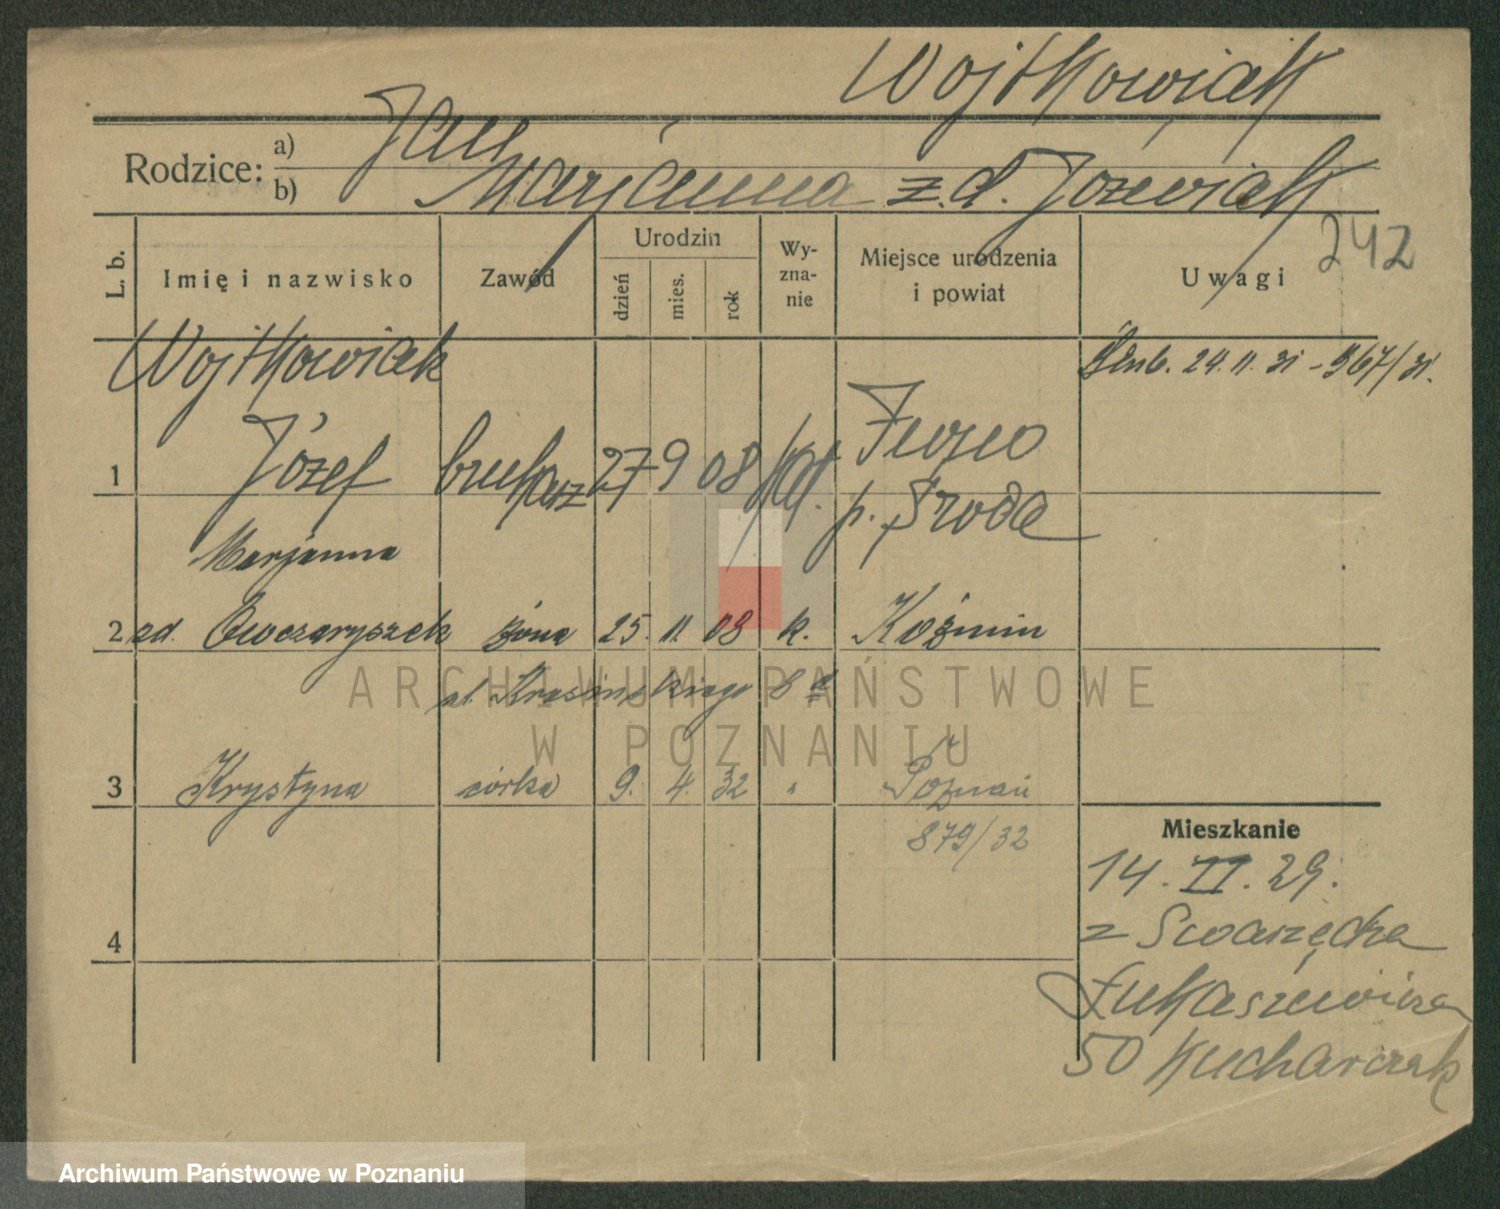 Wojtkowiak
Rodzice: a) Jan
b) Marjanna z.d. Józewiak
242
L. b. Imię i nazwisko Zawód Urodzin dzień mies. rok Wy-zna-nie Miejsce urodzenia i powiat Uwagi
Wojtkowiak
24.11.31 - 967/31.
1 Józef brukarz 27 9 08 kat.
p. Środa
Marjanna
2 zd. Owczaryszek żona 25. 11. 08 k. Koźmin
ul. Krasińskiego 8
3 Krystyna córka 9. 4. 32 " Poznań
879/32
4
Mieszkanie
14.II.29.
z Swarzędza
Łukaszewicza
50 Kucharczak
ARCHIWUM PAŃSTWOWE
W POZNANIU
Archiwum Państwowe w Poznaniu